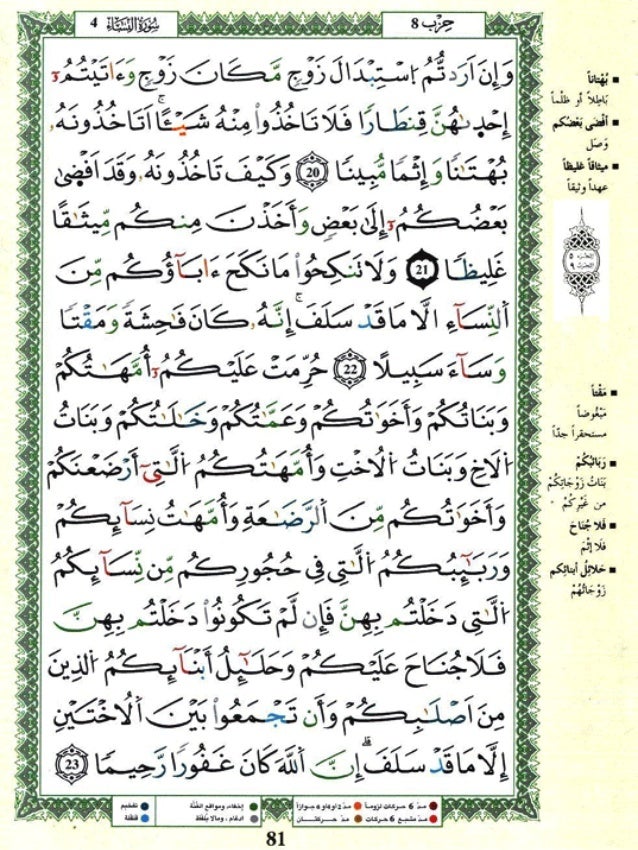 سُورَةُ النِّسَاءِ 4
حِزْب 8
وَإِنَ اَرَدتُّمُ اُسْتِبْدَالَ زَوْجٍ مَّكَانَ زَوْجٍ وَءَاتَيْتُمُۥٓ
إِحْدٜيٰهُنَّ قِنطَارًا فَلَا تَاخُذُواْ مِنْهُ شَيْـًٔا اَتَاخُذُونَهُۥ
بُهْتَٰنًا وَإِثْمًا مُّبِينًا 20 وَكَيْفَ تَاخُذُونَهُۥ وَقَدَ اَفْضٜيٰ
بَعْضُكُمُۥٓ إِلَىٰ بَعْضٍ وَأَخَذْنَ مِنكُم مِّيثَٰقًا
غَلِيظًا 21 وَلَا تَنكِحُواْ مَا نَكَحَ ءَابَآؤُكُم مِّنَ
اَلنِّسَآءِ الَّا مَا قَدْ سَلَفَ إِنَّهُۥ كَانَ فَٰحِشَةً وَمَقْتًا
وَسَآءَ سَبِيلًا 22 حُرِّمَتْ عَلَيْكُمُۥٓ أُمَّهَٰتُكُمْ
وَبَنَاتُكُمْ وَأَخَوَٰتُكُمْ وَعَمَّٰتُكُمْ وَخَٰلَٰتُكُمْ وَبَنَاتُ
اُلَاخِ وَبَنَاتُ اُلُاخْتِ وَأُمَّهَٰتُكُمُ اُلَّٰتِےٓ أَرْضَعْنَكُمْ
وَأَخَوَٰتُكُم مِّنَ اَلرَّضَٰعَةِ وَأُمَّهَٰتُ نِسَآئِكُمْ
وَرَبَٰٓئِبُكُمُ اُلَّٰتِي فِي حُجُورِكُم مِّن نِّسَآئِكُمُ
اُلَّٰتِي دَخَلْتُم بِهِنَّ فَإِن لَّمْ تَكُونُواْ دَخَلْتُم بِهِنَّ
فَلَا جُنَاحَ عَلَيْكُمْ وَحَلَٰٓئِلُ أَبْنَآئِكُمُ اُلذِينَ
مِنَ اَصْلَٰبِكُمْ وَأَن تَجْمَعُواْ بَيْنَ اَلُاخْتَيْنِ
إِلَّا مَا قَدْ سَلَفَ إِنَّ اَللَّهَ كَانَ غَفُورًا رَّحِيمًا 23
■ بُهْتاناً
بَاطِلاً أو ظُلْماً
■ أَفْضَى بَعْضُكم
وَصَل
■ ميثاقاً غليظاً
عهداً وثيقاً
■ مَقْتاً
مَبْغُوضاً
مستحقراً جدّاً
■ رَبَائِبُكُمْ
بَنَاتُ زَوْجَاتِكُمْ
من غَيْرِكُمْ
■ فَلَا جُنَاحَ
فَلَا إِثْمَ
■ حَلَائِلُ أَبْنائِكم
زَوْجَاتُهُمْ
● مدّ 6 حركات لزوماً ● مدّ 2 أو 4 أو 6 جوازاً ● إخفاء، ومواقع الغُنَّة ● تفخيم
● مدّ مشبع 6 حركات ● مدّ حركتـان ● ادغام ، وما لا يُلفَظ ● قلقلة
81